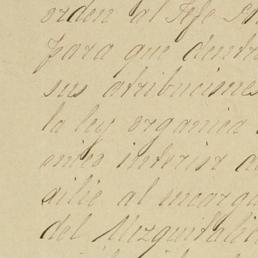 orden al Jefe
para que dentr
sus atribuciones
la ley organica
interior
silie al encarga
del Mezquital